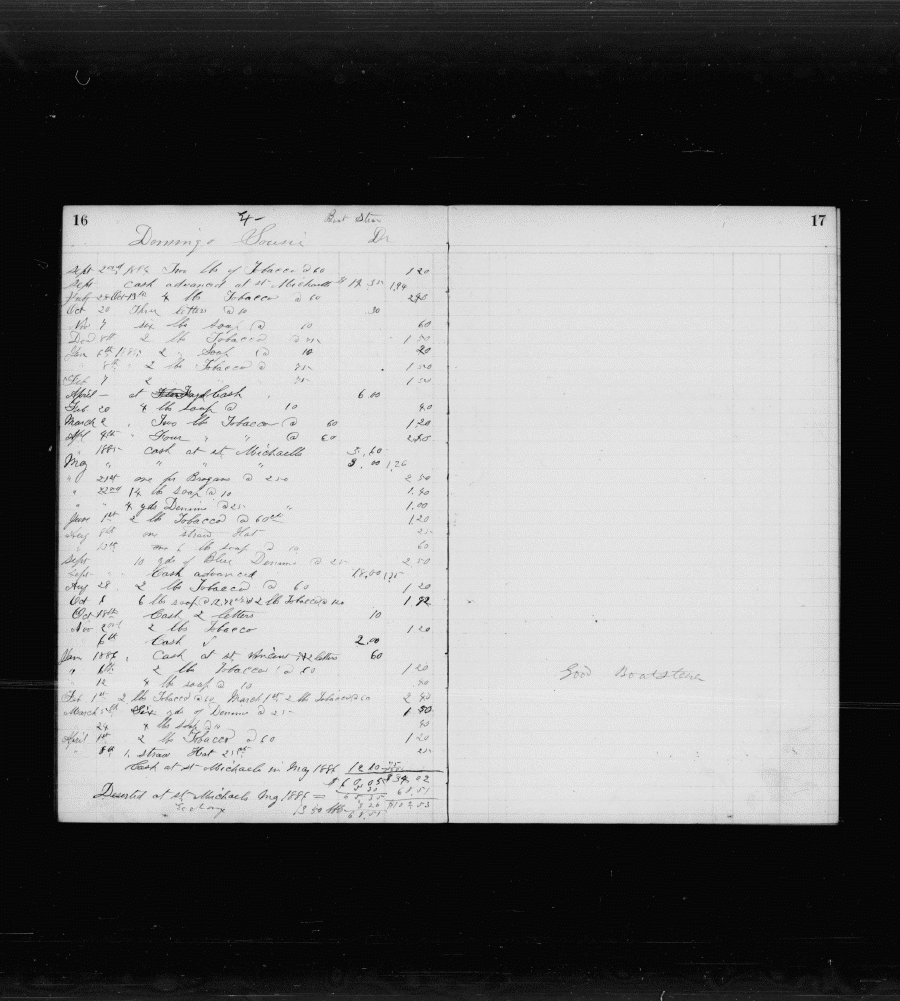 16
4- Boat Steer
Domingo Dr
Sept 2nd 1884 Two lbs of Tobacco @ 60 1 20
Sept Cash advanced at st Michaells $ 19.35 1,94
4 lbs Tobacco @ 60 240
Oct 20 Three letters @ 10 30
Nov 7 six lbs soap @ 10 60
2 lbs Tobacco @ 75 1 50
Jan 6th 1885 2 " Soap @ 10 20
8th 2 lbs Tobacco @ 75 1 50
Feb 7 2 75 1 50
April - at Cash 6 00
Feb 20 4 lbs soap @ 10 40
March 2 , Two lbs Tobacco @ 60 1,20
Apl 4th " Four " " @ 60 240
" 1885 Cash at st Michaells 3,60
May " " " " 3,00 1,26
" 21st one pr Brogans @ 250 2,50
" 22nd 14 lbs soap @ 10 1,40
" " 4 yds Denims @ 25 " 1,00
June 1st 2 lbs Tobacco @ 60cts 1 20
Aug 8th one straw Hat 25
" 10th 6 lb soap @ 10 60
Sept 10 yds of Blue Denims @ 25 2,50
Sept - Cash advanced 18,00 1,75
Aug 28 . 2 lbs Tobacco @ 60 1 20
Oct 1 6 lbs soap @ 12 72cts & 2 lbs Tobacco 1,92
Oct 18th Cash 2 letters 10
Nov 2nd 2 lbs Tobacco 1 20
6th Cash 2,00
Jan 1886 , Cash at st Vincent letters 60
" 1st 2 lbs Tobacco @ 60 1 20
" 12 4 lbs soap @ 10 40
Feb 1st 2 lbs Tobacco @ 60 March 1st 2 lbs Tobacco @ 60 2 40
March 5th Six yds of Denims @ 25 1 50
24 4 lbs soap @ 10 40
April 1st 2 lbs Tobacco @ 60 1 20
" 8th 1, straw Hat 25cts 25
Cash at st Michaells in May 1886 12 10
$ 34,02
Deserted at st Michaells May 1886 = 68,51
$102 53
68,51
17
Good Boatsteerer